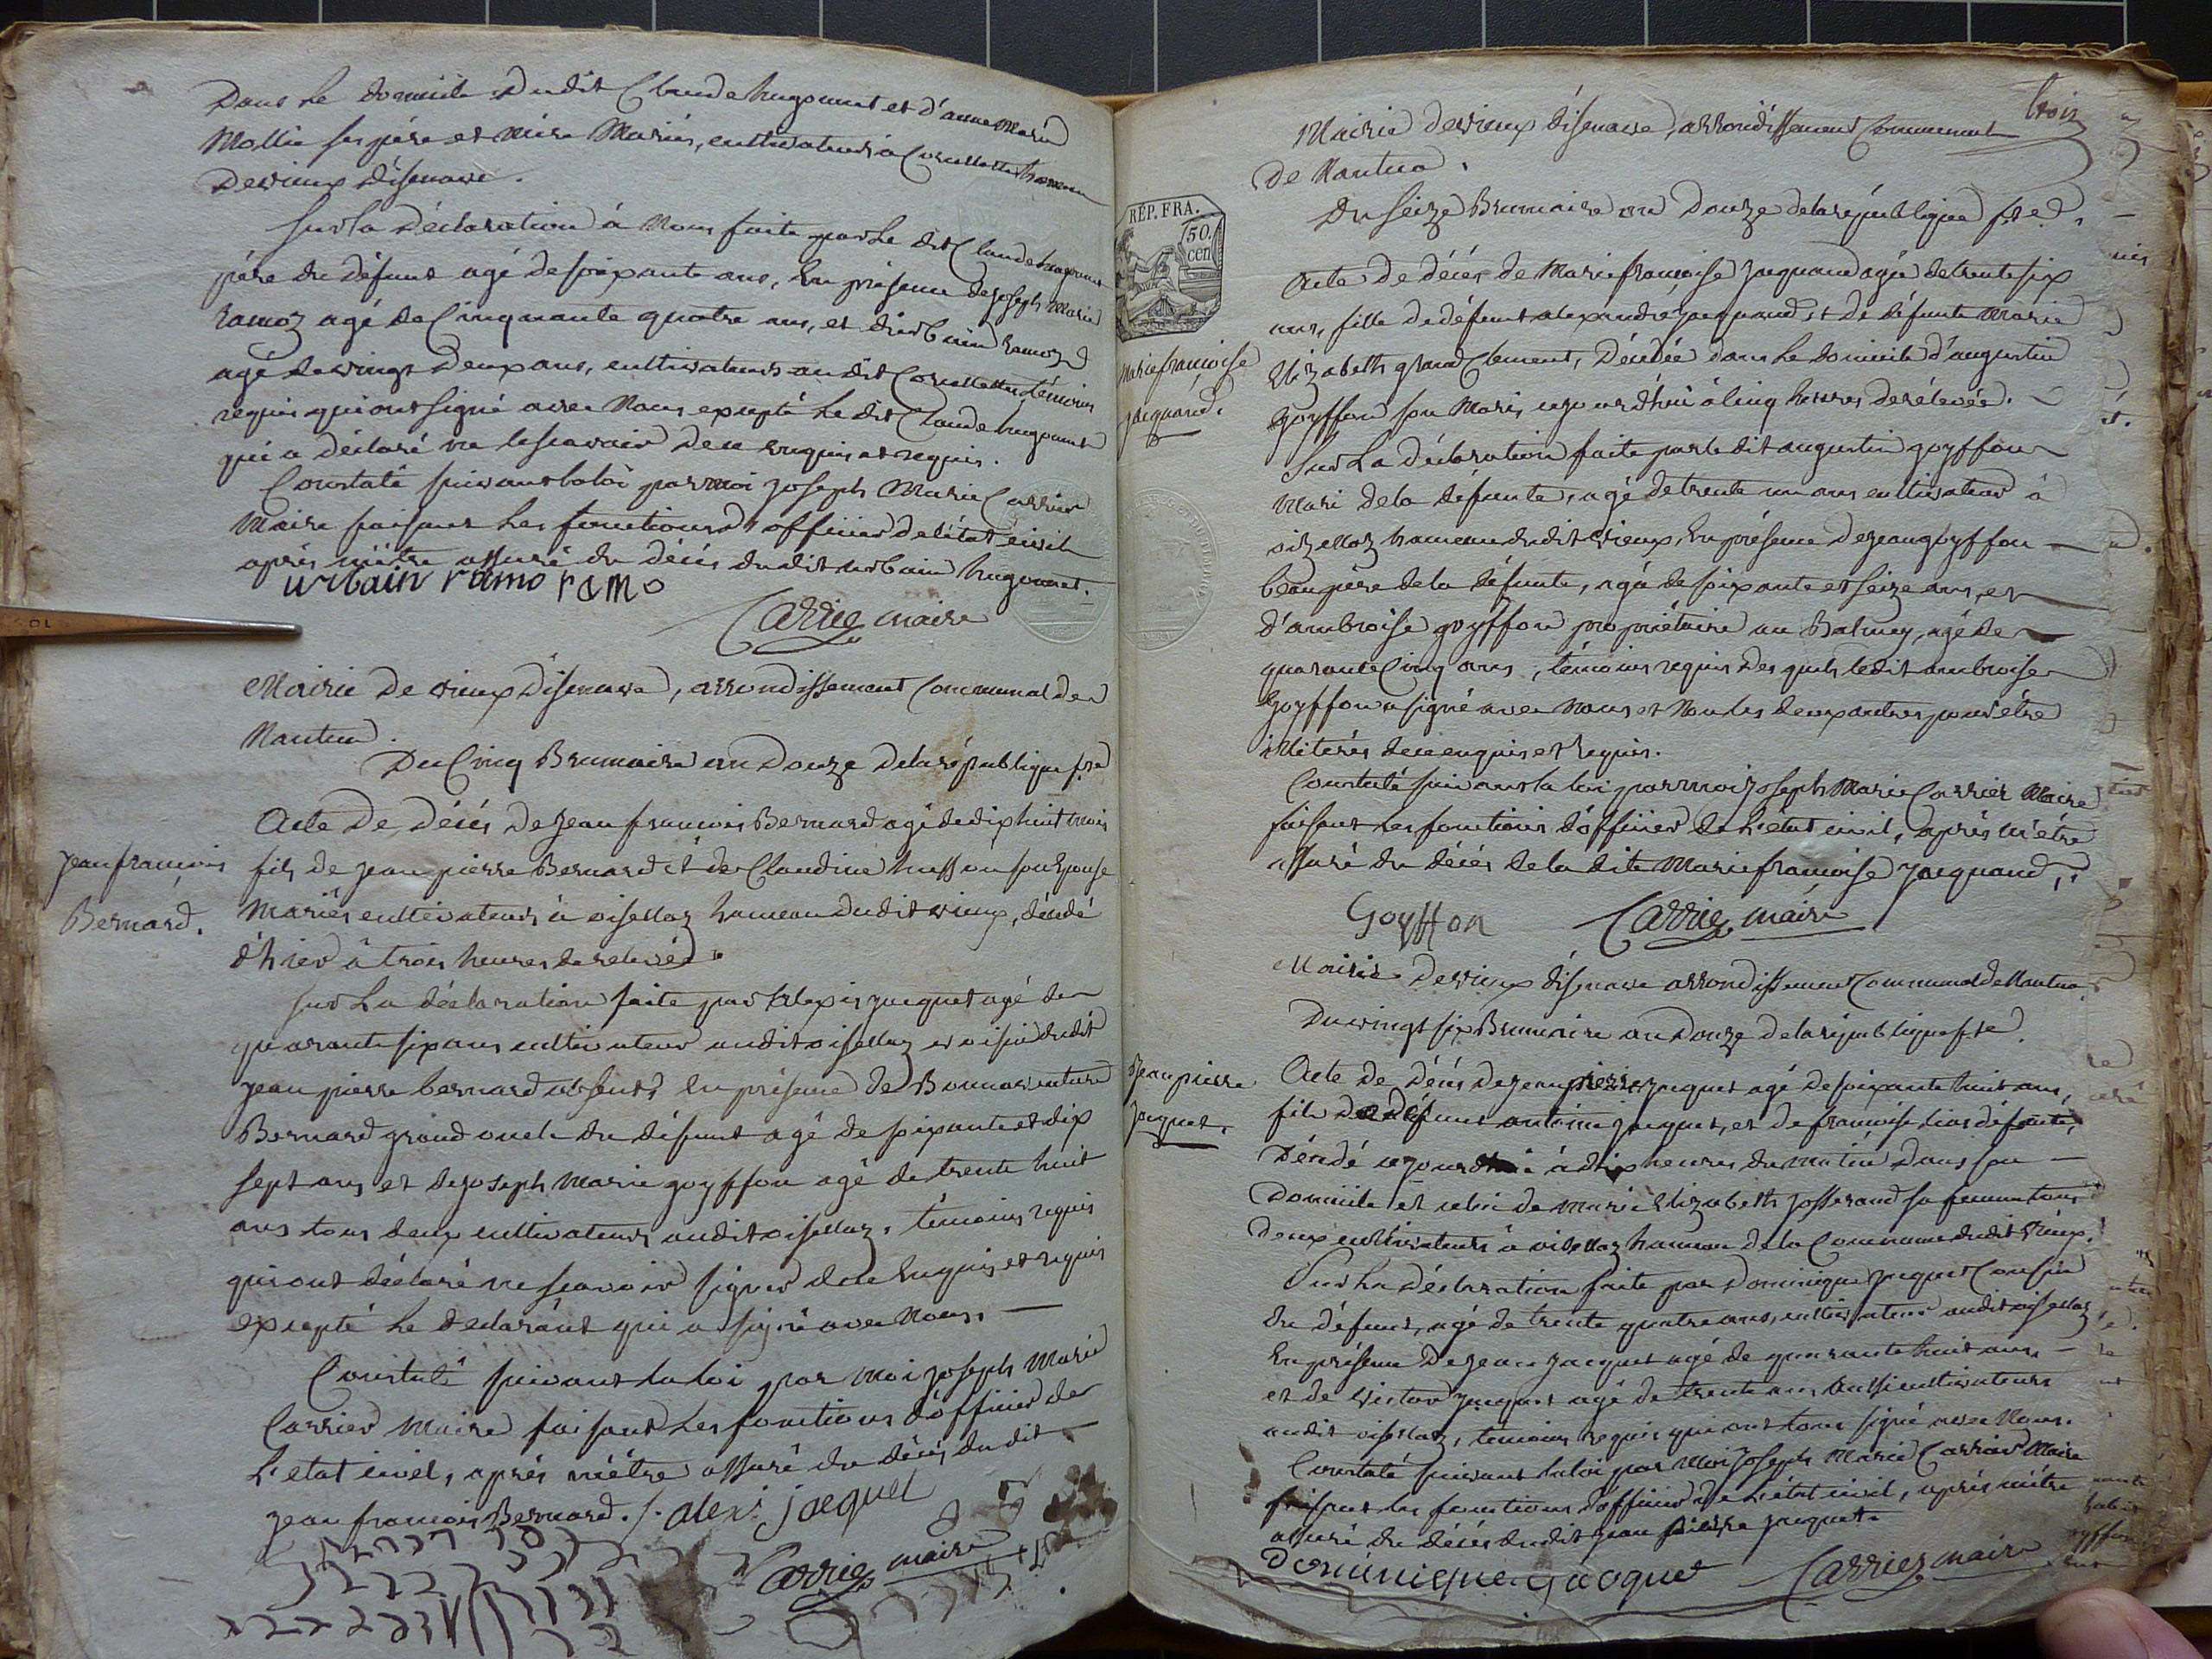 Dans le domicile dudit Claude hugonnet et d'anne Marie
Mollie ses pére et mére Mariés, cultivateurs à Corcelette hameau
De vieux d'isenave.
Sur la déclaration à Nous faite par le dit Claude hugonnet
pére du défunt agé de soixante ans, En présence de joseph Marie
ramoz agé de Cinquante quatre ans, et d'urbain ramoz
agé de vingt deux ans, cultivateurs au dit Corcelette, témoins
requis qui ont signé avec Nous excepté le dit Claude hugonnet
qui a déclaré ne le scavoir de ce enquis et requis.
Constaté suivant la loi par moi joseph Marie Carrier
Maire faisant les fonctions d'officier de l'état civil
aprés m'étre assuré du décés dudit urbain hugonnet.
urbain ramo ramo
Carrier maire
Mairie de vieux d'isenave, arrondissement Communal de
Nantua.
Du Cinq Brumaire an Douze de la république fse
Jean françois
Bernard.
Acte de décés de jean françois Bernard agé de dix huit mois
fils de jean pierre Bernard et de Claudine husson son Epouse
Mariés cultivateurs à oisellaz hameau dudit vieux, décédé
d'hier à trois heures de relevée.
Sur la déclaration faite par Alexis jacquet agé de
quarante six ans cultivateur audit oisellaz et voisin dudit
jean pierre bernard absent, En présence de Bonnaventure
Bernard grand oncle du défunt agé de soixante et dix
sept ans et de joseph Marie goyffon agé de trente huit
ans tous deux cultivateurs audit oisellaz, témoins requis
qui ont déclaré ne scavoir signer de ce Enquis et requis
excepté le déclarant qui a signé avec Nous.
Constaté suivant la loi par moi joseph Marie
Carrier Maire faisant les fonctions d'officier de
L'etat civil, aprés m'étre assuré du décés dudit
jean françois Bernard. alexi jaquet
Carrier maire
trois
Mairie de vieux d'isenave, arrondissement Communal
de Nantua.
Du Seize Brumaire an Douze de la république fse.
RÉP. FRA.
50.
cen
Marie françoise
jacquand.
Acte de décés de Marie françoise jacquand agée de trente six
ans, fille de défunt alexandre jacquand et de défunte Marie
Elizabeth grand Clement, Décédée dans le domicile d'augustin
Goyffon son Mari, cejourd'hui à Cinq heures de relevée.
Sur La déclaration faite par le dit augustin goyffon
Mari de la défunte, agé de trente un ans cultivateur à
oizellaz hameau dudit vieux, En présence de jean goyffon
beau pére de la défunte, agé de soixante et seize ans, et
d'ambroise goyffon propriétaire au Balmey, agé de
quarante Cinq ans, témoins requis desquels ledit ambroise
Goyffon a signé avec Nous et Non les deux autres pour étre
illiterés de ce enquis et requis.
Constaté suivant la loi par moi joseph Marie Carrier Maire
faisant les fonctions d'officier de L'état civil, aprés m'étre
assuré du décés de la dite Marie françoise jacquand.
Goyffon Carrier maire
Mairie de vieux d'isenave arrondissement Communal de Nantua
Du vingt six Brumaire an Douze de la république fse.
Jean pierre
jacquet.
Acte de décés de jean pierre jacquet agé de soixante huit ans,
fils de défunt antoine jacquet, et de françoise défunte,
Décédé cejourd'hui à dix heures du matin dans son
Domicile et celui de Marie Elizabeth josserand sa femme tous
deux cultivateurs à oisellaz hameau de la Commune dudit vieux.
Sur La déclaration faite par dominique jacquet Cousin
du défunt, agé de trente quatre ans, cultivateur audit oisellaz
En présence de jean jacquet agé de quarante huit ans,
et de victor jacquet agé de trente ans aussi cultivateurs
audit oisellaz, temoins requis qui ont tous signé avec Nous.
Constaté suivant la loi par Moi joseph Marie Carrier Maire
faisant les fonctions d'officier de L'état civil, aprés m'étre
assuré du décés dudit jean pierre jacquet.
Dominique jacquet Carrier maire